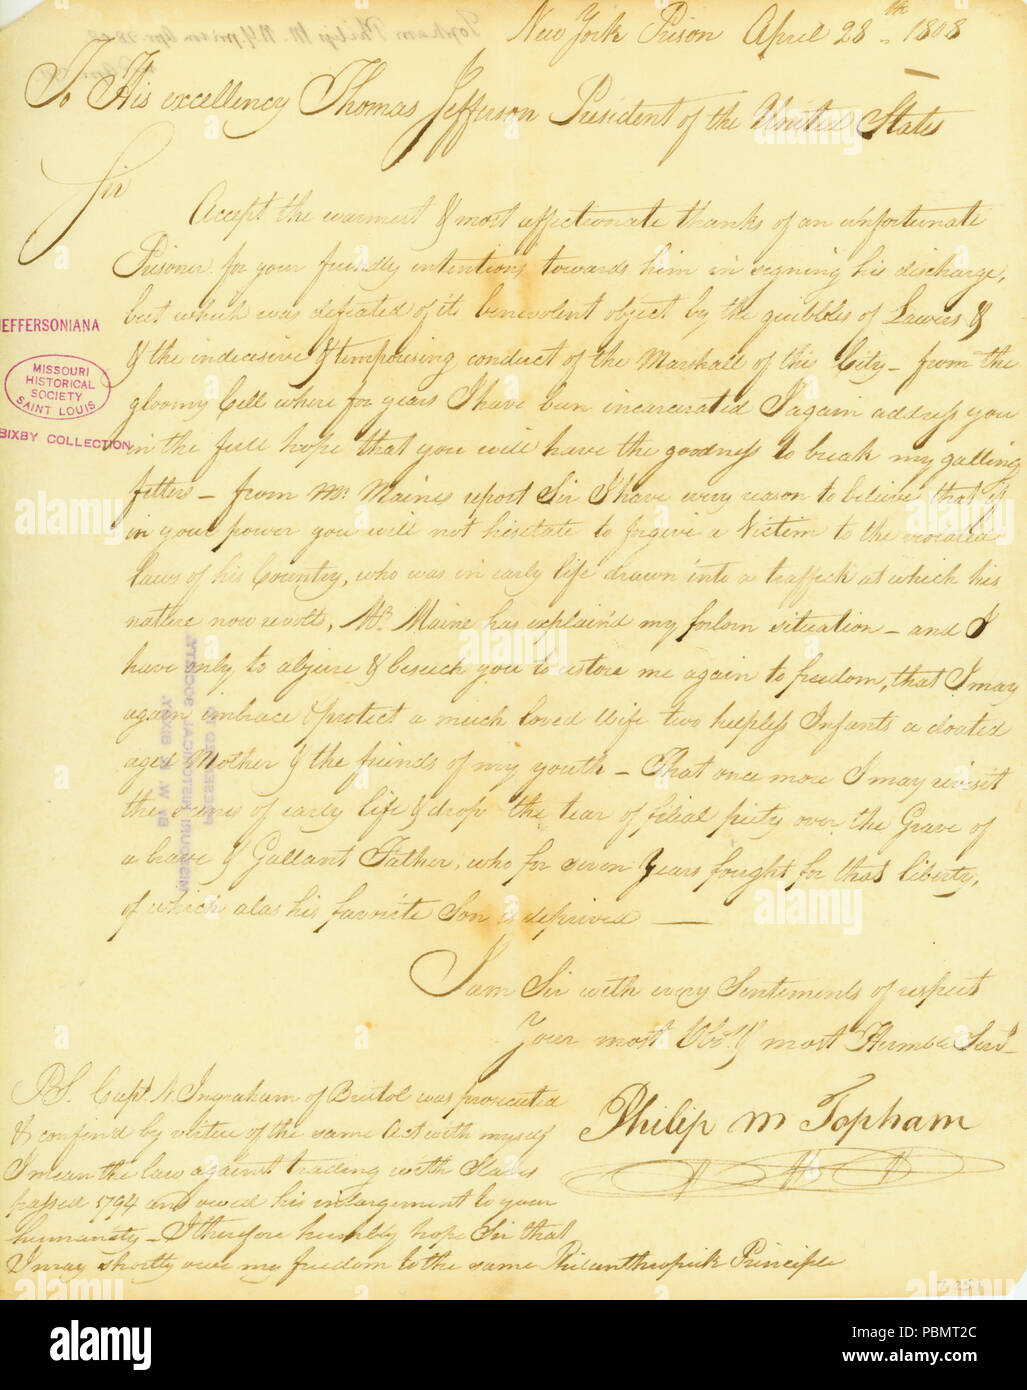 New York Prison April 28th 1808
To His excellency Thomas Jefferson President of the United States
Sir
Accept the warmest & most affectionate thanks of an unfortunate
Prisoner for your friendly intentions towards him in signing his discharge,
but which was defeated of its benevolent object by the quibbles of Lawers &
& the indecisive & temporising conduct of the Marshall of this City – from the
gloomy Cell where for years I have been incarcerated I again address you
in the full hope that you will have the goodness to break my galling
fetters – from Mr. Maines report Sir I have every reason to believe that if
in your power you will not hesitate to forgive a Victim to the violated
laws of his Country, who was in early life drawn into a traffick at which his
nature now revolts, Mr. Maine has explain'd my forlorn situation – and I
have only to abjure & beseech you to restore me again to freedom, that I may
again embrace & protect a much loved Wife two helpless Infants a doated
aged Mother & the friends of my youth – That once more I may revisit
the scenes of early life & drop the tear of filial piety over the Grave of
a brave & Gallant Father, who for seven Years fought for that liberty,
of which alas his favorite Son is deprived —
I am Sir with every Sentiments of respect
Your most Obt. & most Humble Servt
Philip M Topham
PS. Capt. N. Ingraham of Bristol was prosecuted
& confin'd by virtue of the same Act with myself
I mean the law against trading with Slaves
passed 1794 and owed his enlargement to your
humanity – I therefore humbly hope Sir that
I may shortly owe my freedom to the same Philanthropick Principle
JEFFERSONIANA
MISSOURI
HISTORICAL
SOCIETY
SAINT LOUIS
BIXBY COLLECTION
PRESENTED TO
MISSOURI HISTORICAL SOCIETY.
BY W. K. BIXBY.
Topham Philip M. N.Y. prison Apr. 28. 08
alamy
a
Image ID: PBMT2C
www.alamy.com